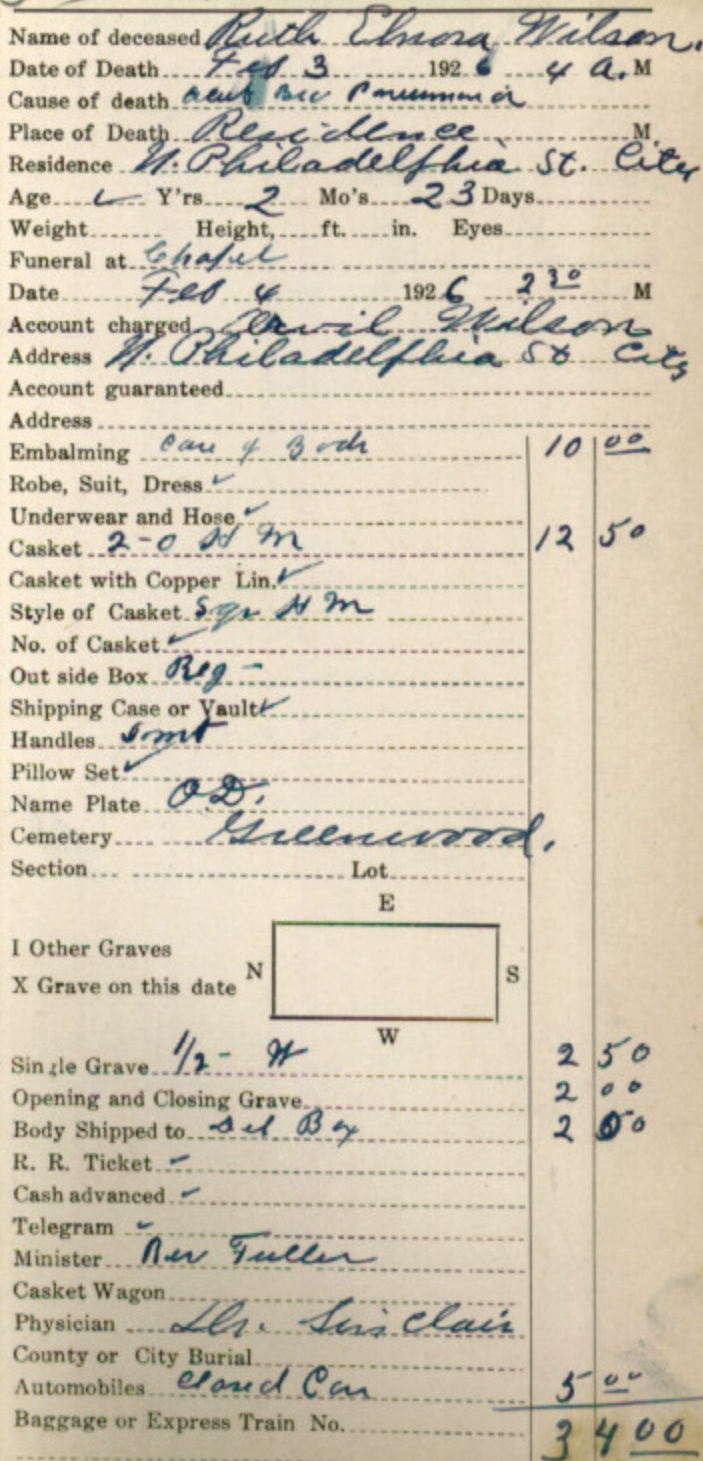 Name of deceased Ruth Elnora Wilson.
Date of Death Feb 3 1926 4 A. M
Cause of death acute Pneumonia
Place of Death Residence M
Residence N. Philadelphia St. City
Age ✓ Y'rs 2 Mo's 23 Days
Weight Height, ft. in. Eyes
Funeral at Chapel
Date Feb 4 1926 2 30 M
Account charged Wilson
Address N. Philadelphia St City
Account guaranteed
Address
Embalming Care of Body 10 00
Robe, Suit, Dress ✓
Underwear and Hose ✓
Casket 2-0 H M 12 50
Casket with Copper Lin. ✓
Style of Casket Sqr H M
No. of Casket ✓
Out side Box Reg -
Shipping Case or Vault ✓
Handles
Pillow Set ✓
Name Plate O.D.
Cemetery Greenwood.
Section Lot
E
I Other Graves
N S
X Grave on this date
W
Single Grave 1/2 - W 2 50
Opening and Closing Grave 2 00
Body Shipped to Del Box 2 00
R. R. Ticket -
Cash advanced -
Telegram -
Minister Rev Fuller
Casket Wagon
Physician Dr. Sinclair
County or City Burial
Automobiles Closed Car 5 00
Baggage or Express Train No. 34 00